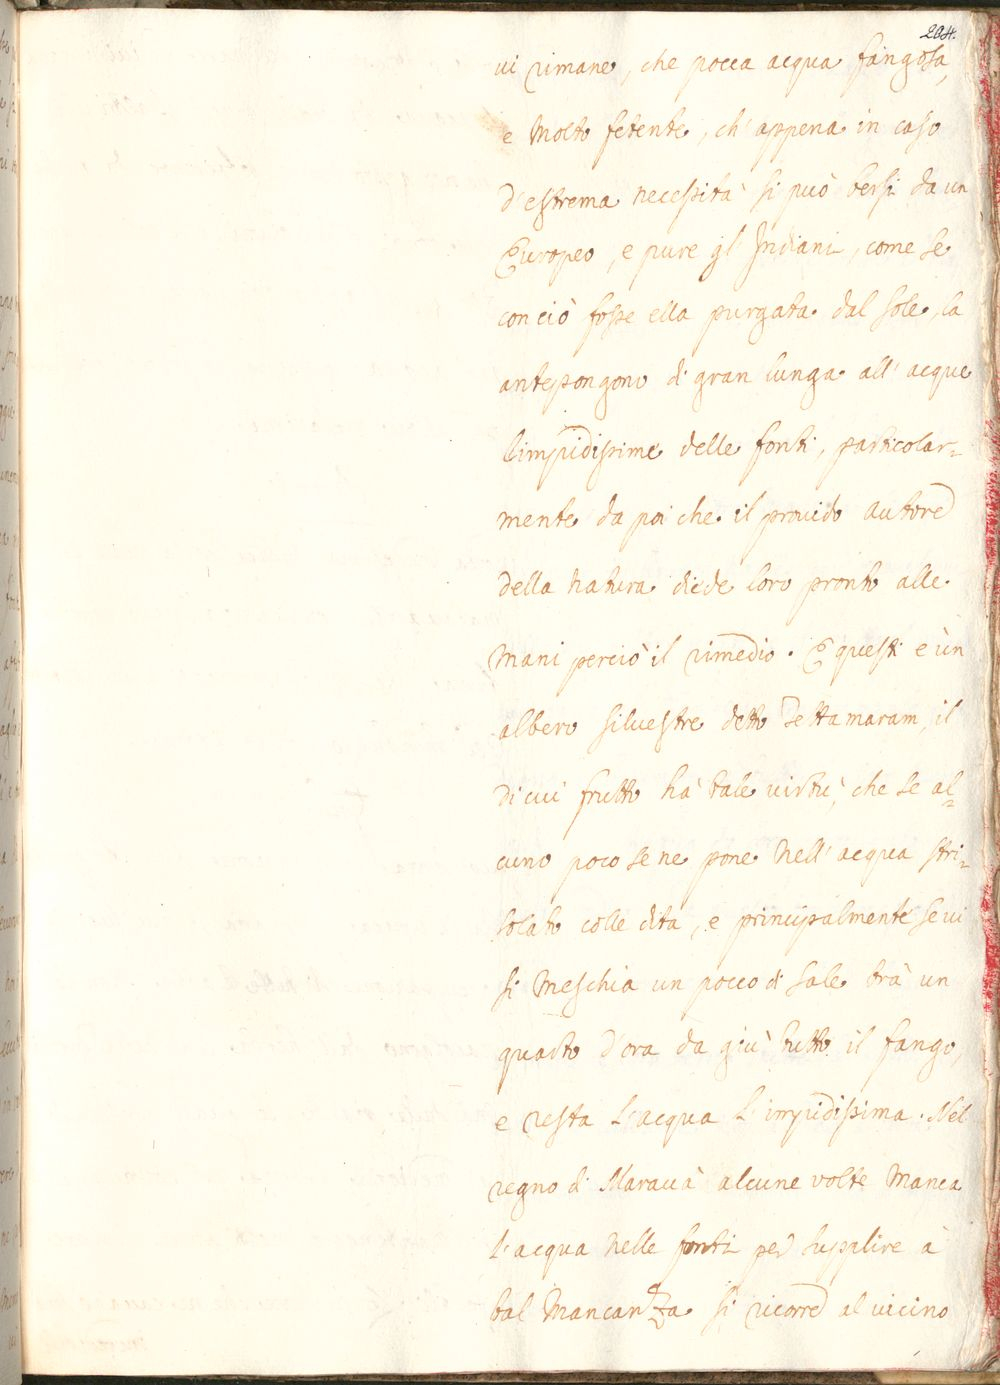 204.
vi rimane, che pocca acqua fangosa,
e molto fetente, ch'appena in caso
d'estrema necessità si può bersi da un
Europeo, e pure gl'Indiani, come se
con ciò fosse ella purgata dal sole, la
antepongono di gran lunga all'acque
limpidissime delle fonti, particolar-
mente da poi che il provido autore
della natura diede loro pronto alle
mani perciò il rimedio. E questi è un
albero silvestre detto Tettamaram, il
di cui frutto hà tale virtù, che se al-
cuno poco se ne pone nell'acqua stri-
solato colle dita, e principalmente se vi
si meschia un pocco di sale trà un
quarto d'ora da giù tutto il fango,
e resta l'acqua limpidissima. Nel
regno di Maravà alcune volte manca
l'acqua nelle fonti per supplire à
tal mancanza si ricorre al vicino